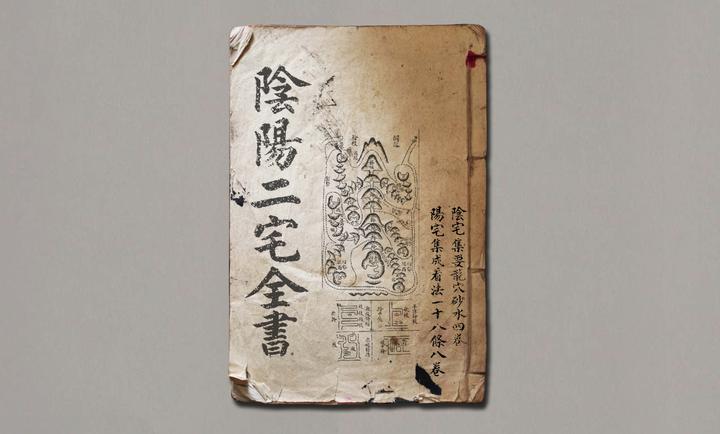 陰宅集要龍穴砂水四卷
陽宅集成看法一十八條八卷
陰陽二宅全書